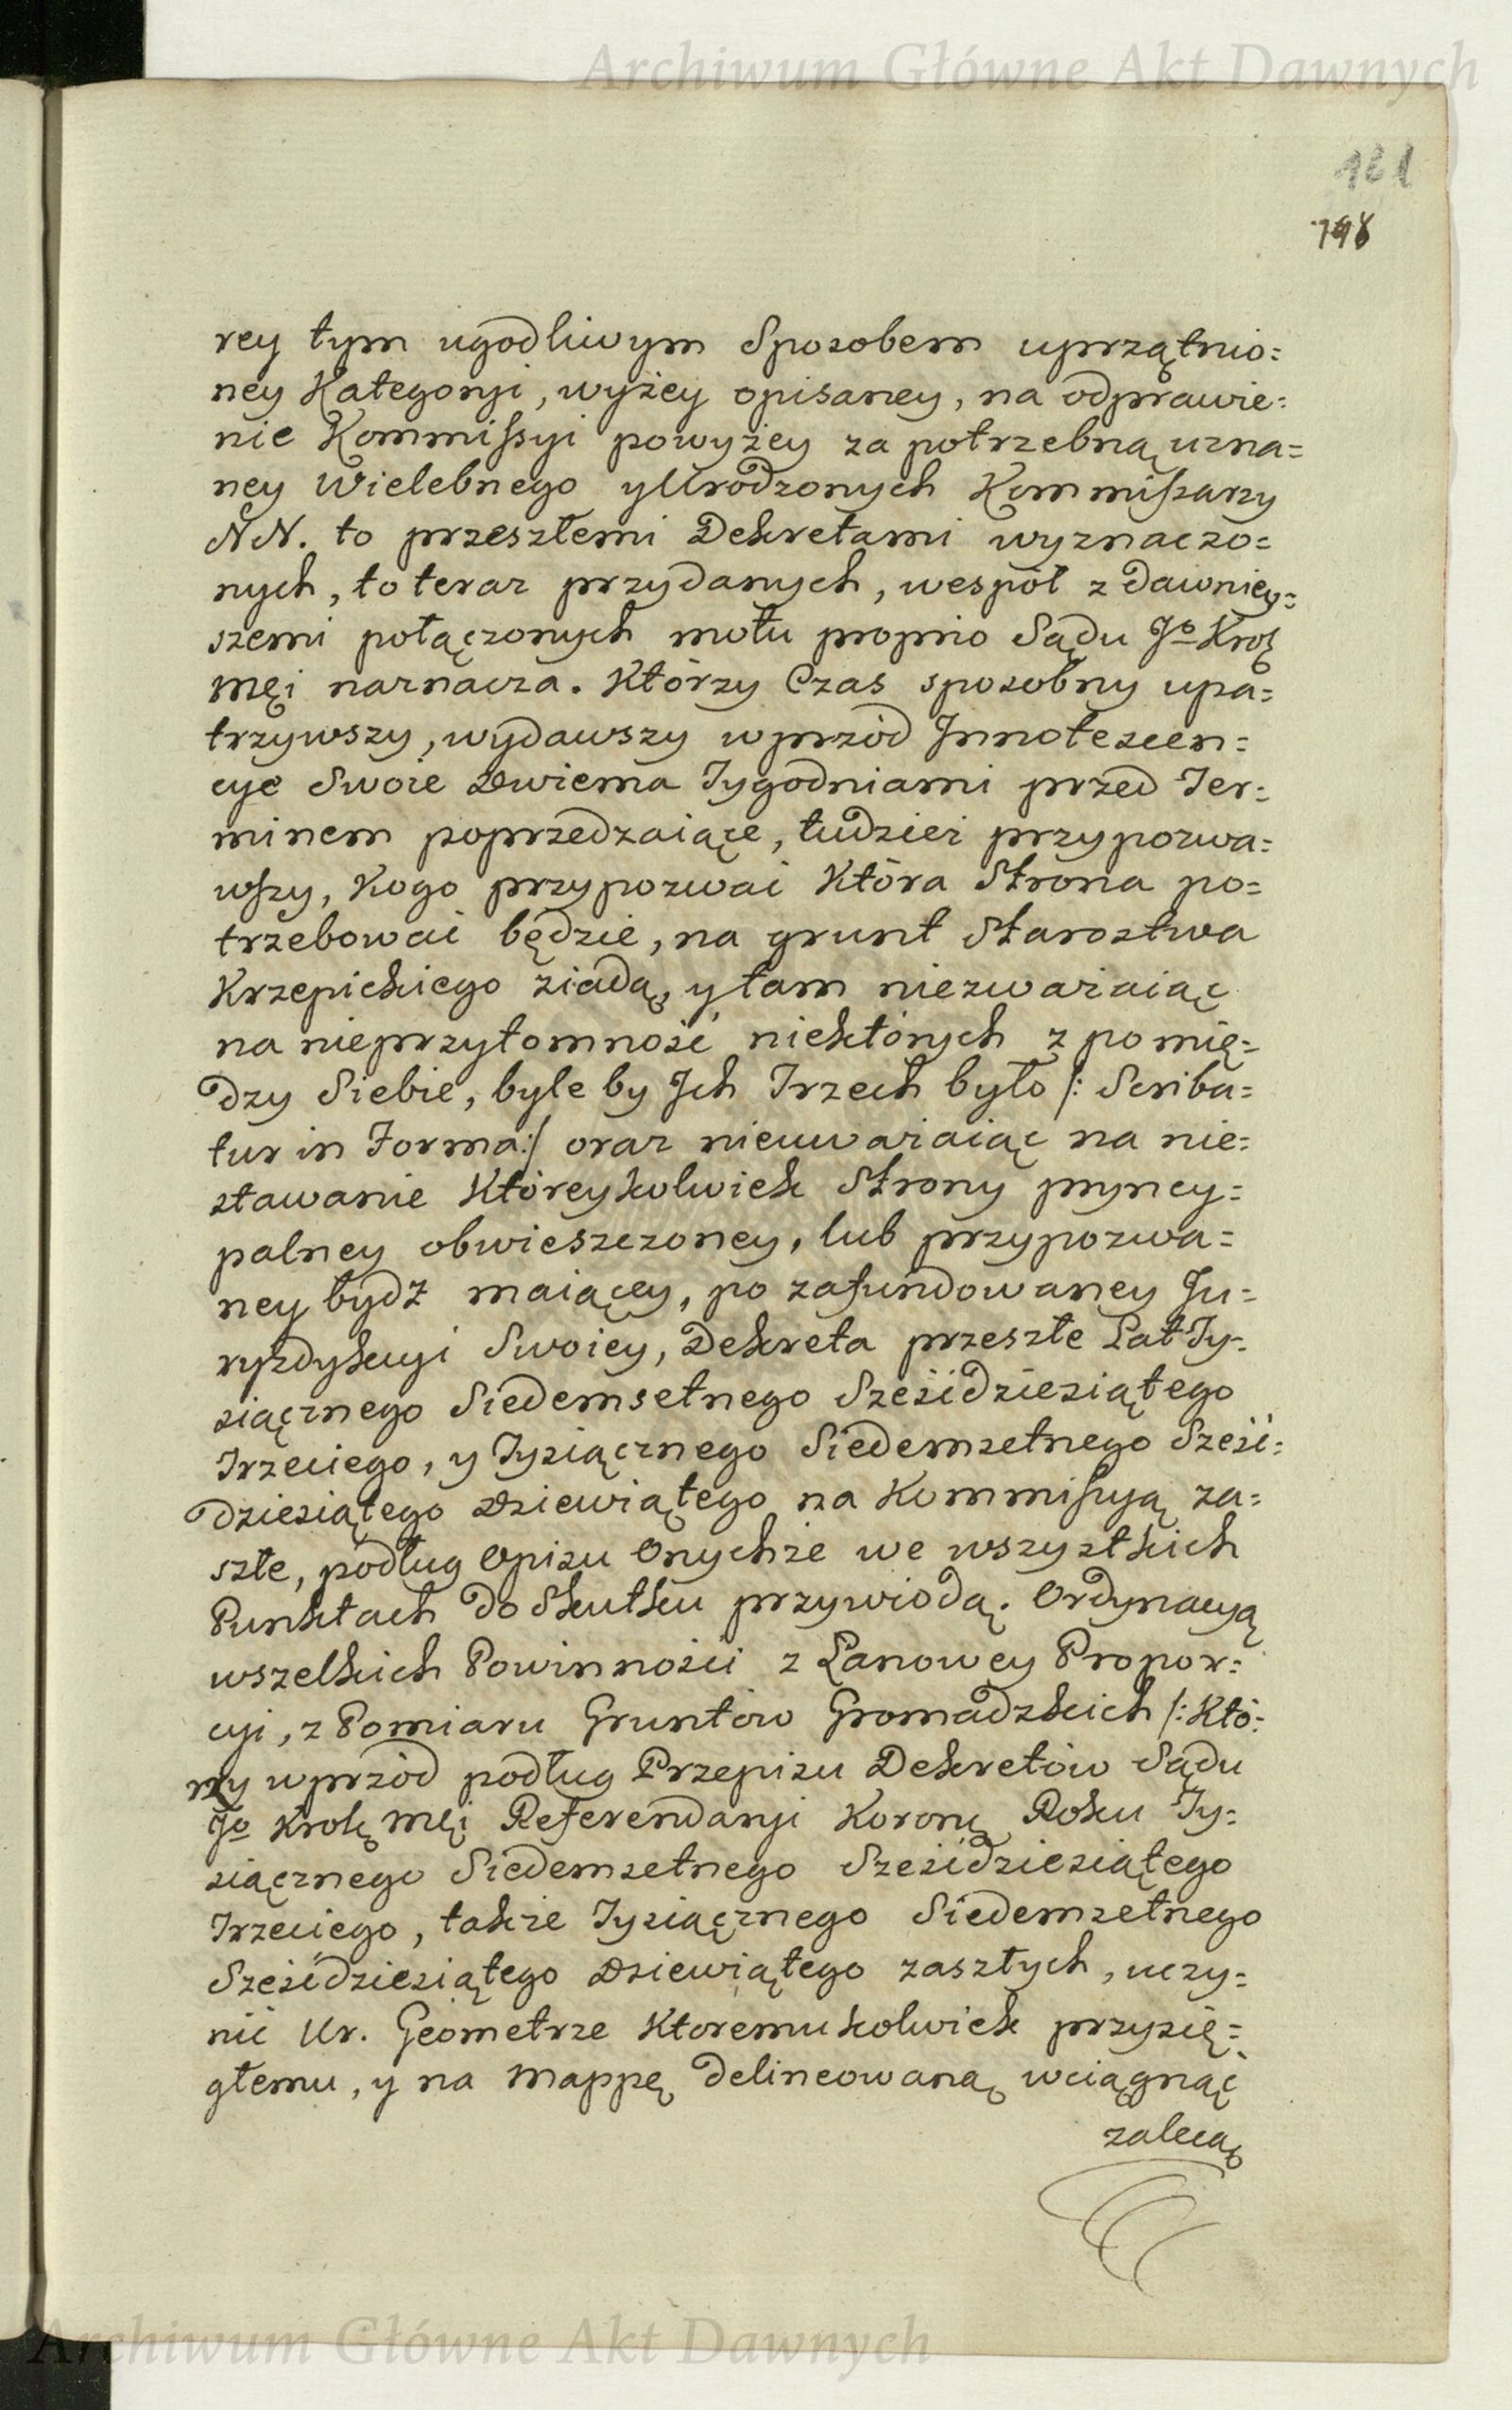 Archiwum Główne Akt Dawnych
121
198
rey tym ugodliwym Sposobem uprzątnio=
ney Kategoryi, wyżey opisaney, na odprawie=
nie Kommissyi powyżey za potrzebną uzna=
ney Wielebnego y Urodzonych Kommissarzy
NN. to przeszłemi Dekretami wyznaczo=
nych, to teraz przydanych, wespół z dawniey=
szemi połączonych motu proprio Sądu Jo Krol
Mci naznacza. Którzy Czas sposobny upa=
trzywszy, wydawszy wprzód Innotescen=
cye Swoie Dwiema Tygodniami przed Ter=
minem poprzedzaiące, tudzież przypozwa=
wszy, Kogo przypozwać Która Strona po=
trzebować będzie, na grunt Starostwa
Krzepickiego ziadą, y tam niezważaiąc
na nieprzytomność niektórych z pomię=
dzy Siebie, byle by Ich Trzech było /: Scriba=
tur in Forma :/ oraz nieuważaiąc na nie=
stawanie Któreykolwiek Strony pryncy=
palney obwieszczoney, lub przypozwa=
ney bydź maiącey, po zafundowaney Ju=
ryzdykcyi Swoiey, Dekreta przeszłe Lat Ty=
siącznego Siedemsetnego Sześćdziesiątego
Trzeciego, y Tysiącznego Siedemsetnego Sześć=
dziesiątego Dziewiątego na Kommissyą za=
szłe, podług Opisu Onychże we wszystkich
Punktach do Skutku przywiodą. Ordynacyą
wszelkich Powinności z Łanowey Propor=
cyi, z Pomiaru Gruntów Gromadzkich /: Któ=
ry wprzód podług Przepisu Dekretów Sądu
Jo Krolę Mci Referendaryi Koronę Roku Ty=
siącznego Siedemsetnego Sześćdziesiątego
Trzeciego, także Tysiącznego Siedemsetnego
Sześćdziesiątego Dziewiątego zaszłych, uczy=
nić Ur. Geometrze Ktoremukolwiek przysię=
głemu, y na Mappę delineowaną wciągnąć
zalecą
Archiwum Główne Akt Dawnych